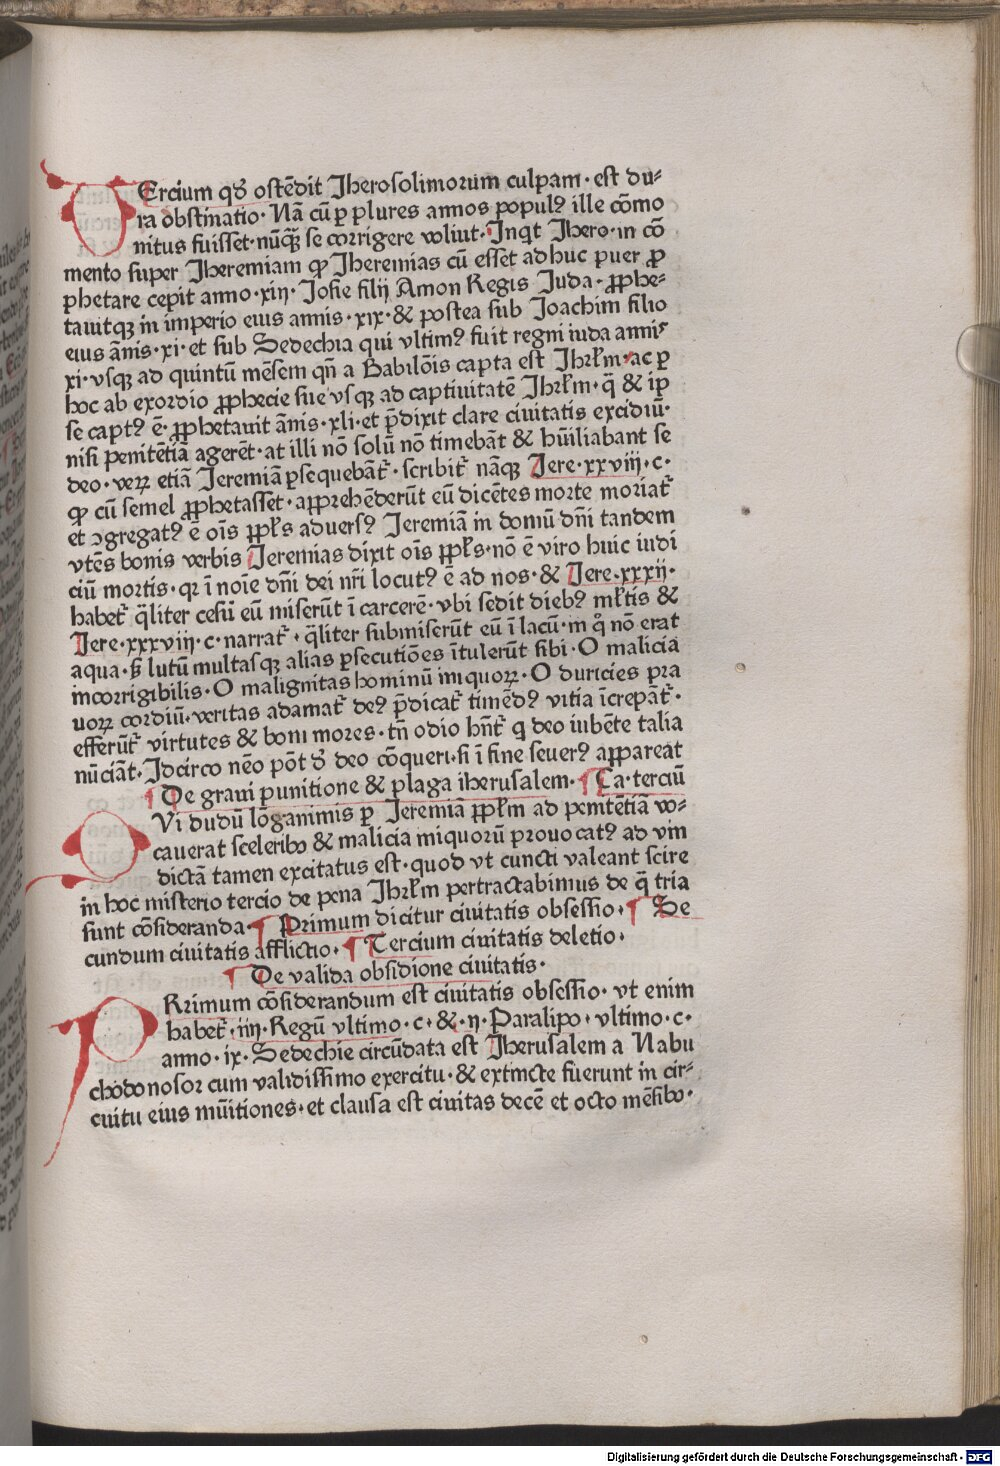 TErcium qđ ostēdit Jherosolimorum culpam · est du⸗
ra obstinatio · Nā cū ꝑ plures annos popul⁹ ille cōmo
nitus fuisset · nūq̄ꝫ se corrigere voluit · Inqͥt Jhero · in cō
mento super Jheremiam ꝙ Jheremias cū esset adhuc puer ꝓ
phetare cepit anno · xiij · Josie filij Amon Regis Juda · ꝓphe⸗
tauitqꝫ in imperio eius annis · xix · & postea sub Joachim filio
eius ānis · xi · et sub Sedechia qui vltim⁹ fuit regni iuda annis
xi · vsqꝫ ad quintū mēsem qn̄ a Babilōis capta est Jhrlm̄ · ac ꝑ
hoc ab exordio ꝓphecie sue vsqꝫ ad captiuitatē Jhrlm̄ · q̄ & ip
se capt⁹ ē · ꝓphetauit ānis · xli · et p̄dixit clare ciuitatis excidiū ·
nisi penitētiā agerēt · at illi nō solū nō timebāt & hūiliabant se
deo · veꝝ etiā Jeremiā ꝑsequebāt᷑ · scribit᷑ nāqꝫ Jere · xxviij · c ·
ꝙ cū semel ꝓphetasset · apprehēderūt eū dicētes morte moriat᷑
et ꝯgregat⁹ ē oīs ppl̄s aduers⁹ Jeremiā in domū dn̄i tandem
vtēs bonis verbis Jeremias dixit oīs ppl̄s · nō ē viro huic iudi
ciū mortis · qꝛ ī noīe dn̄i dei nr̄i locut⁹ ē ad nos · & Jere · xxxij ·
habet᷑ q̄liter cesū eū miserūt ī carcerē · vbi sedit dieb⁹ ml̄tis &
Jere · xxxviij · c · narrat᷑ · q̄liter submiserūt eū ī lacū · in qͦ nō erat
aqua · sꝫ lutū multasqꝫ alias ꝑsecutiōes ītulerūt sibi · O malicia
incorrigibilis · O malignitas hominū iniquoꝝ · O duricies pra
uoꝝ cordiū · veritas adamat᷑ de⁹ p̄dicat᷑ timēd⁹ vitia īcrepāt᷑ ·
efferūt᷑ virtutes & boni mores · tn̄ odio hn̄t᷑ q deo iubēte talia
nūciāt · Idcirco nēo pōt đ deo cōqueri · si ī fine seuer⁹ appareat
¶ De graui punitione & plaga iherusalem · ¶ Ca · terciū
QVi dudū lōganimis ꝑ Jeremiā ppl̄m ad penitētiā vo⸗
cauerat sceleribꝰ & malicia iniquorū prouocat⁹ ad vin
dictā tamen excitatus est · quod vt cuncti valeant scire
in hoc misterio tercio de pena Jhrlm̄ pertractabimus de q̄ tria
sunt cōsideranda · ¶ Primum dicitur ciuitatis obsessio · ¶ Se
cundum ciuitatis afflictio · ¶ Tercium ciuitatis deletio ·
¶ De valida obsidione ciuitatis ·
PRrimum cōsiderandum est ciuitatis obsessio · vt enim
habet᷑ · iiij · Regū vltimo · c · & · ij · Paralipo · vltimo · c ·
anno · ix · Sedechie circūdata est Jherusalem a Nabu
chodonosor cum validissimo exercitu · & extructe fuerunt in cir⸗
cuitu eius mūitiones · et clausa est ciuitas decē et octo mēsibꝰ ·
Digitalisierung gefördert durch die Deutsche Forschungsgemeinschaft · DFG